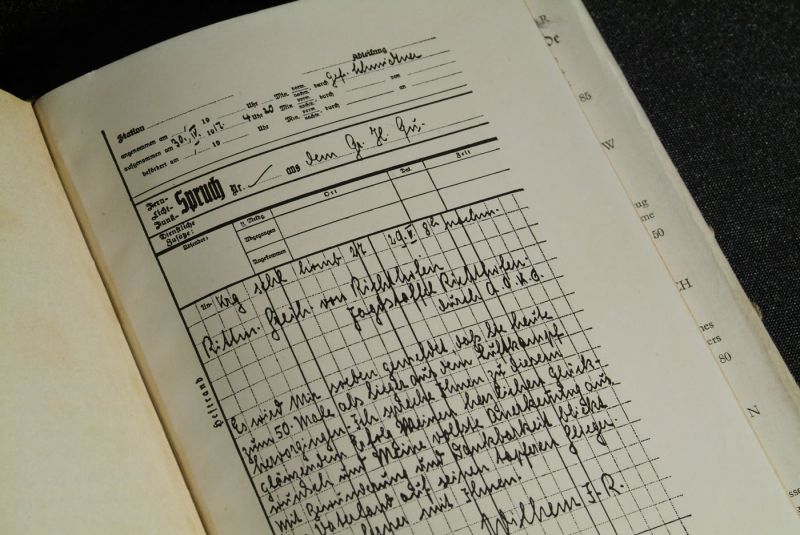 Abteilung
Station
Gefr. Schneider
angenommen am 19 Uhr Min. vorm. nachm. durch von
aufgenommen am 30./IV. 1917. 4 Uhr 20 Min. vorm. nachm. durch an
befördert am / 19 Uhr Min. vorm. nachm. durch
Fern-
Licht-
Funk-
Spruch Nr. aus dem Gr. H. Qu.
Dienstliche Zusätze:
n. Meldg. Ort Tag Zeit
Absender: Abgegangen
Angekommen
An 29./IV. nachm.
Rittm. Frh. von Richthofen
Jagdstaffel Richthofen.
durch A.O.K.
Heftrand
Es wird mir soeben gemeldet, daß Sie heute
zum 50. Male als Sieger aus dem Luftkampf
hervorgingen. Ich spreche Ihnen zu diesem
glänzenden Erfolg Meinen herzlichen Glück-
wunsch und Meine vollste Anerkennung aus.
Mit Bewunderung und Dankbarkeit blickt
Vaterland auf seinen tapferen Flieger.
ferner mit Ihnen.
Wilhelm I.R.
R
85
W
ug
me
50
H
nes
ers
80
N